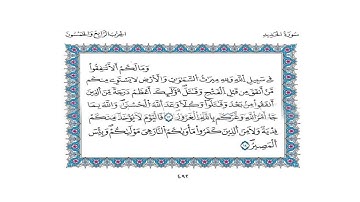 سورة الحديد الحزب الرابع والخمسون
وَمَا لَكُمْ أَلَّا تُنفِقُوا
فِي سَبِيلِ اللَّهِ وَلِلَّهِ مِيرَٰثُ السَّمَٰوَٰتِ وَالْأَرْضِ لَا يَسْتَوِي مِنكُم
مَّنْ أَنفَقَ مِن قَبْلِ الْفَتْحِ وَقَٰتَلَ أُو۟لَٰئِكَ أَعْظَمُ دَرَجَةً مِّنَ الَّذِينَ
أَنفَقُوا مِن بَعْدُ وَقَٰتَلُوا وَكُلًّا وَعَدَ اللَّهُ الْحُسْنَىٰ وَاللَّهُ بِمَا
جَاءَ أَمْرُ اللَّهِ وَغَرَّكُم بِاللَّهِ الْغَرُورُ فَالْيَوْمَ لَا يُؤْخَذُ مِنكُمْ
فِدْيَةٌ وَلَا مِنَ الَّذِينَ كَفَرُوا مَأْوَىٰكُمُ النَّارُ هِيَ مَوْلَىٰكُمْ وَبِئْسَ
الْمَصِيرُ
٤٩٢